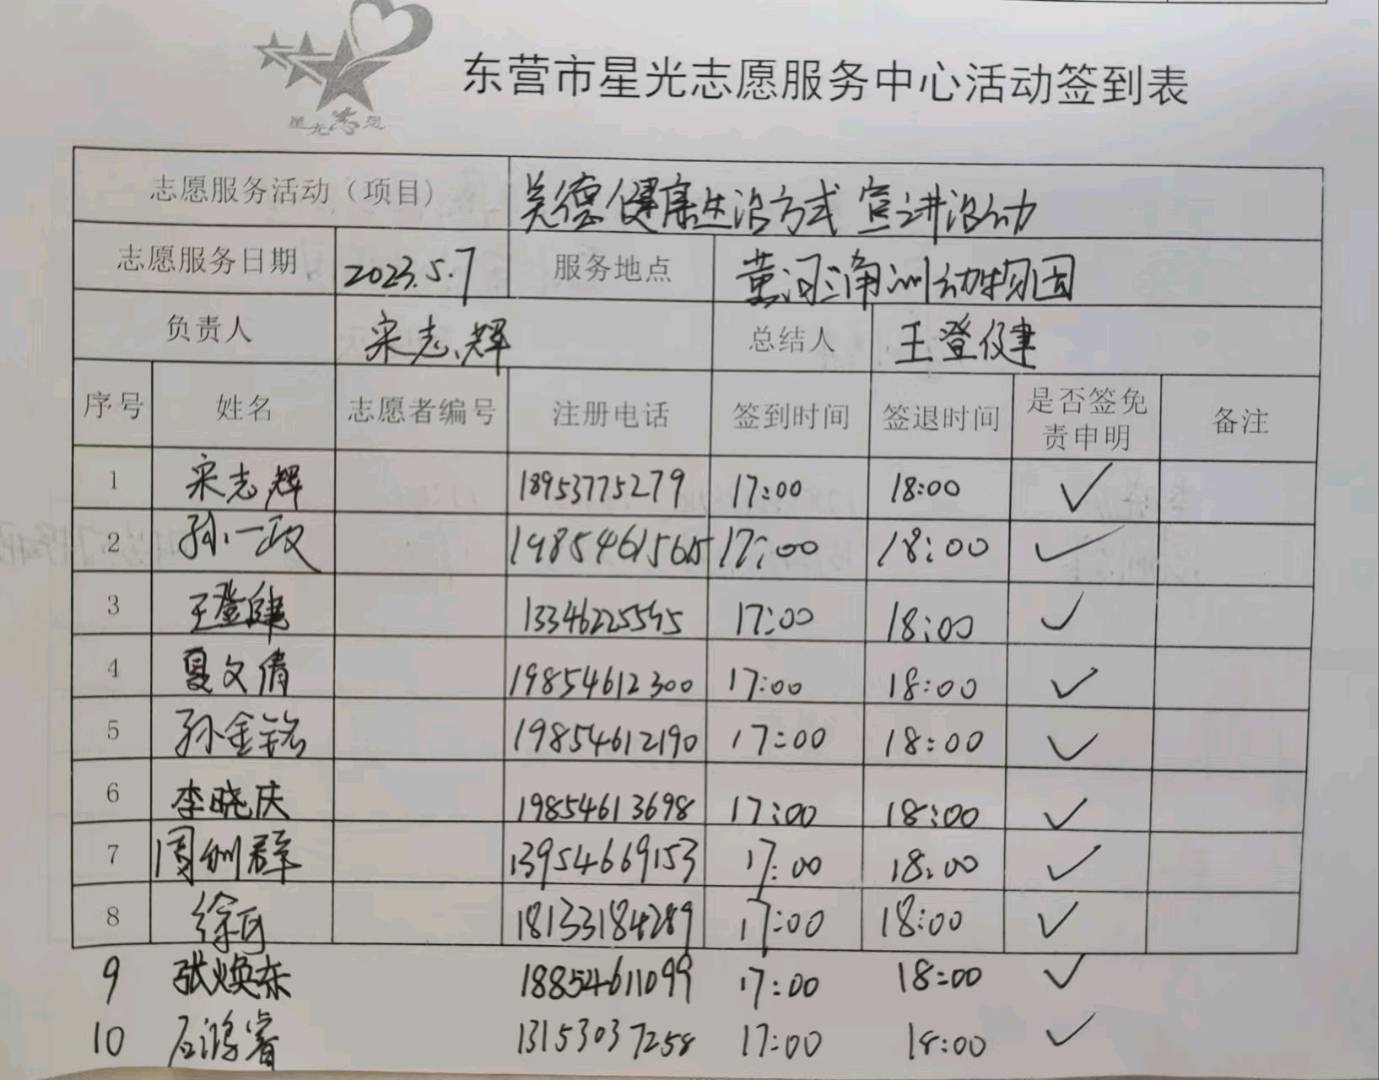 星光志愿
东营市星光志愿服务中心活动签到表
志愿服务活动（项目） 美德健康生活方式 宣讲活动
志愿服务日期 2023.5.7 服务地点 黄河三角洲动物园
负责人 宋志辉 总结人 王登健
序号 姓名 志愿者编号 注册电话 签到时间 签退时间 是否签免责申明 备注
1 宋志辉 18953775279 17:00 18:00 ✓
2 孙一政 19854615615 17:00 18:00 ✓
3 王登健 13346225545 17:00 18:00 ✓
4 夏文倩 19854612300 17:00 18:00 ✓
5 孙金铭 19854612190 17:00 18:00 ✓
6 李晓庆 19854613698 17:00 18:00 ✓
7 周 群 13954669153 17:00 18:00 ✓
8 徐 18133184289 17:00 18:00 ✓
9 张焕东 18854611099 17:00 18:00 ✓
10 石鸿睿 13153037258 17:00 18:00 ✓